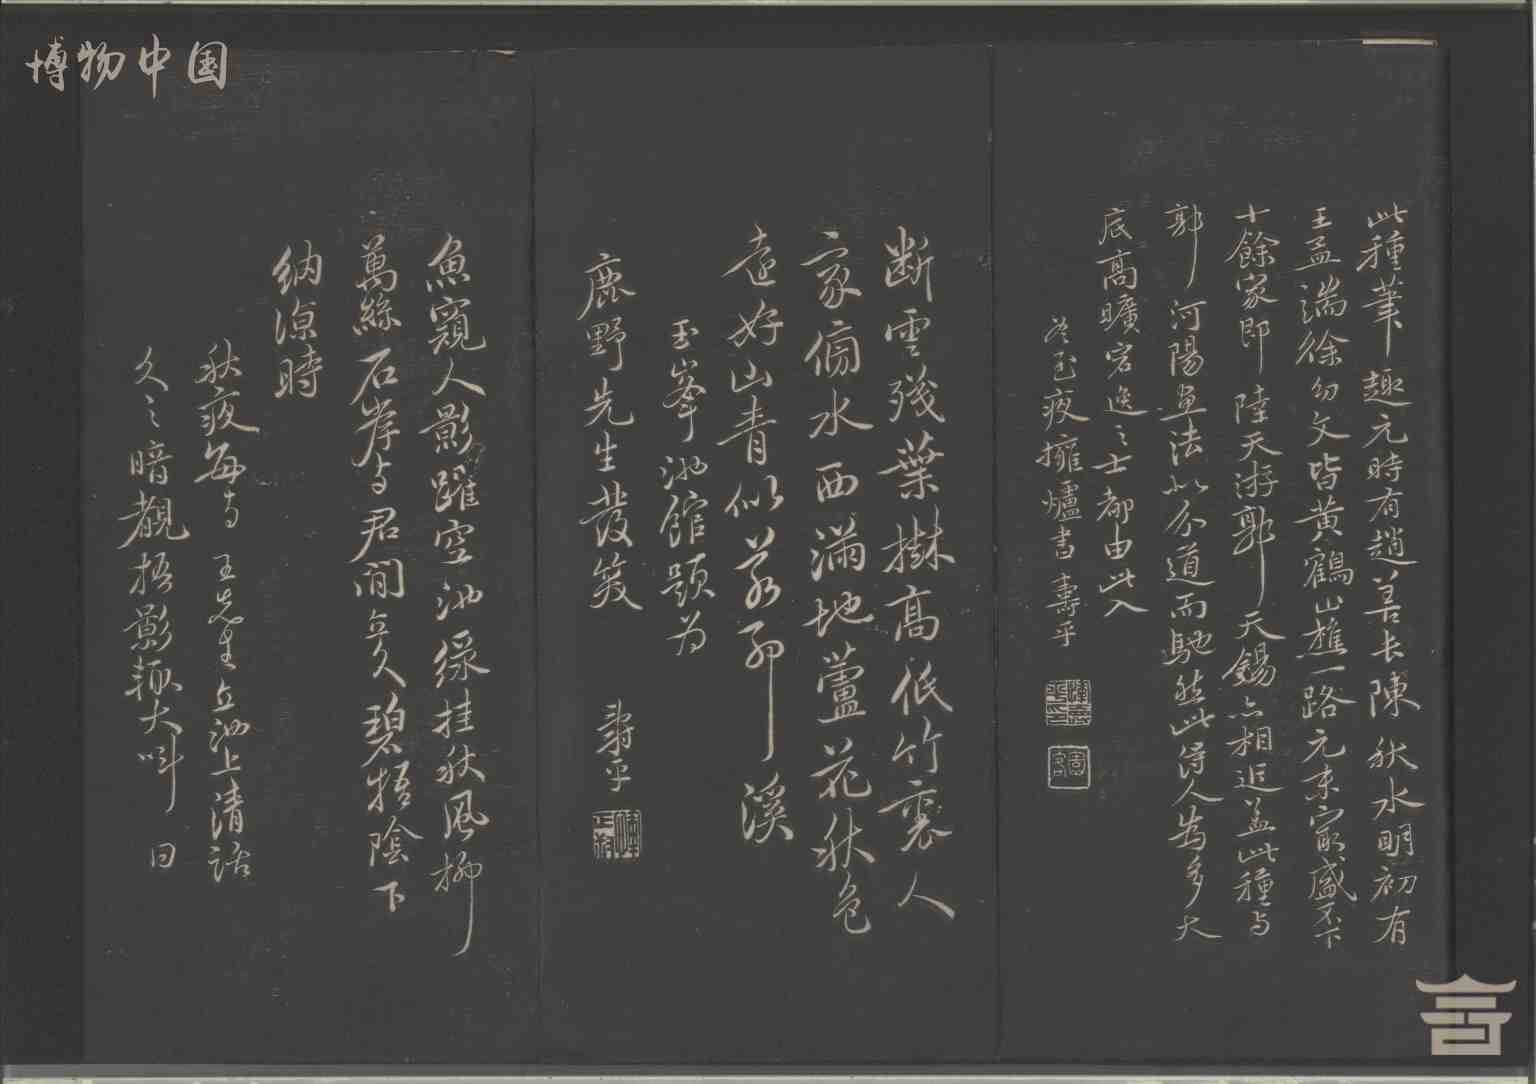 博物中国
此種筆趣元時有趙善長陳秋水明初有
王孟端徐幼文皆黄鶴山樵一路元末最盛不下
十餘家即陸天游郭天錫亦相近蓋此種与
郭河陽畫法必分道而馳然此得人為多大
底高曠宕逸之士都由此入
冬至夜擁爐書壽平
断雲殘葉樹高低竹裏人
家傍水西滿地蘆花秋色
遠好山青似若耶溪
玉峯池館題为
鹿野先生發笑
壽平
魚窺人影躍空池緑挂秋風柳
萬絲石岸与君閒立久碧梧陰下
納凉時
秋夜每与王先生立池上清話
久之暗觀梧影輒大叫曰